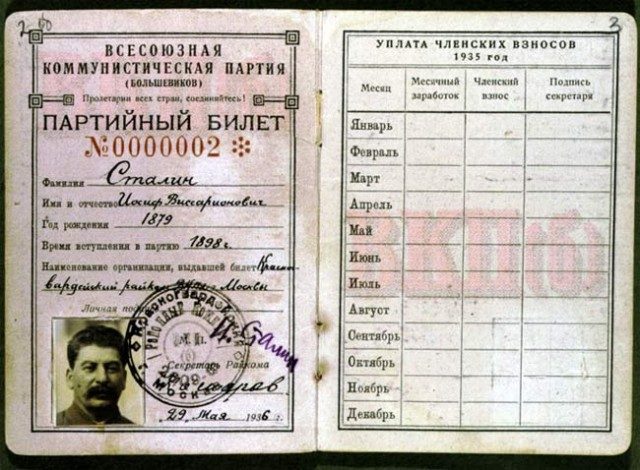 20
ВСЕСОЮЗНАЯ
КОММУНИСТИЧЕСКАЯ ПАРТИЯ
(БОЛЬШЕВИКОВ)
Пролетарии всех стран, соединяйтесь!
ПАРТИЙНЫЙ БИЛЕТ
№0000002
Фамилия Сталин
Имя и отчество Иосиф Виссарионович
Год рождения 1879
Время вступления в партию 1898 г.
Наименование организации, выдавшей билет Красно-
гвардейский райком г. Москвы
Личная
И. Сталин
М. П.
Секретарь Райкома
29 мая 1936 г.
3
УПЛАТА ЧЛЕНСКИХ ВЗНОСОВ
1935 год
Месяц Месячный заработок Членский взнос Подпись секретаря
Январь
Февраль
Март
Апрель
Май
Июнь
Июль
Август
Сентябрь
Октябрь
Ноябрь
Декабрь
ВКП(б)